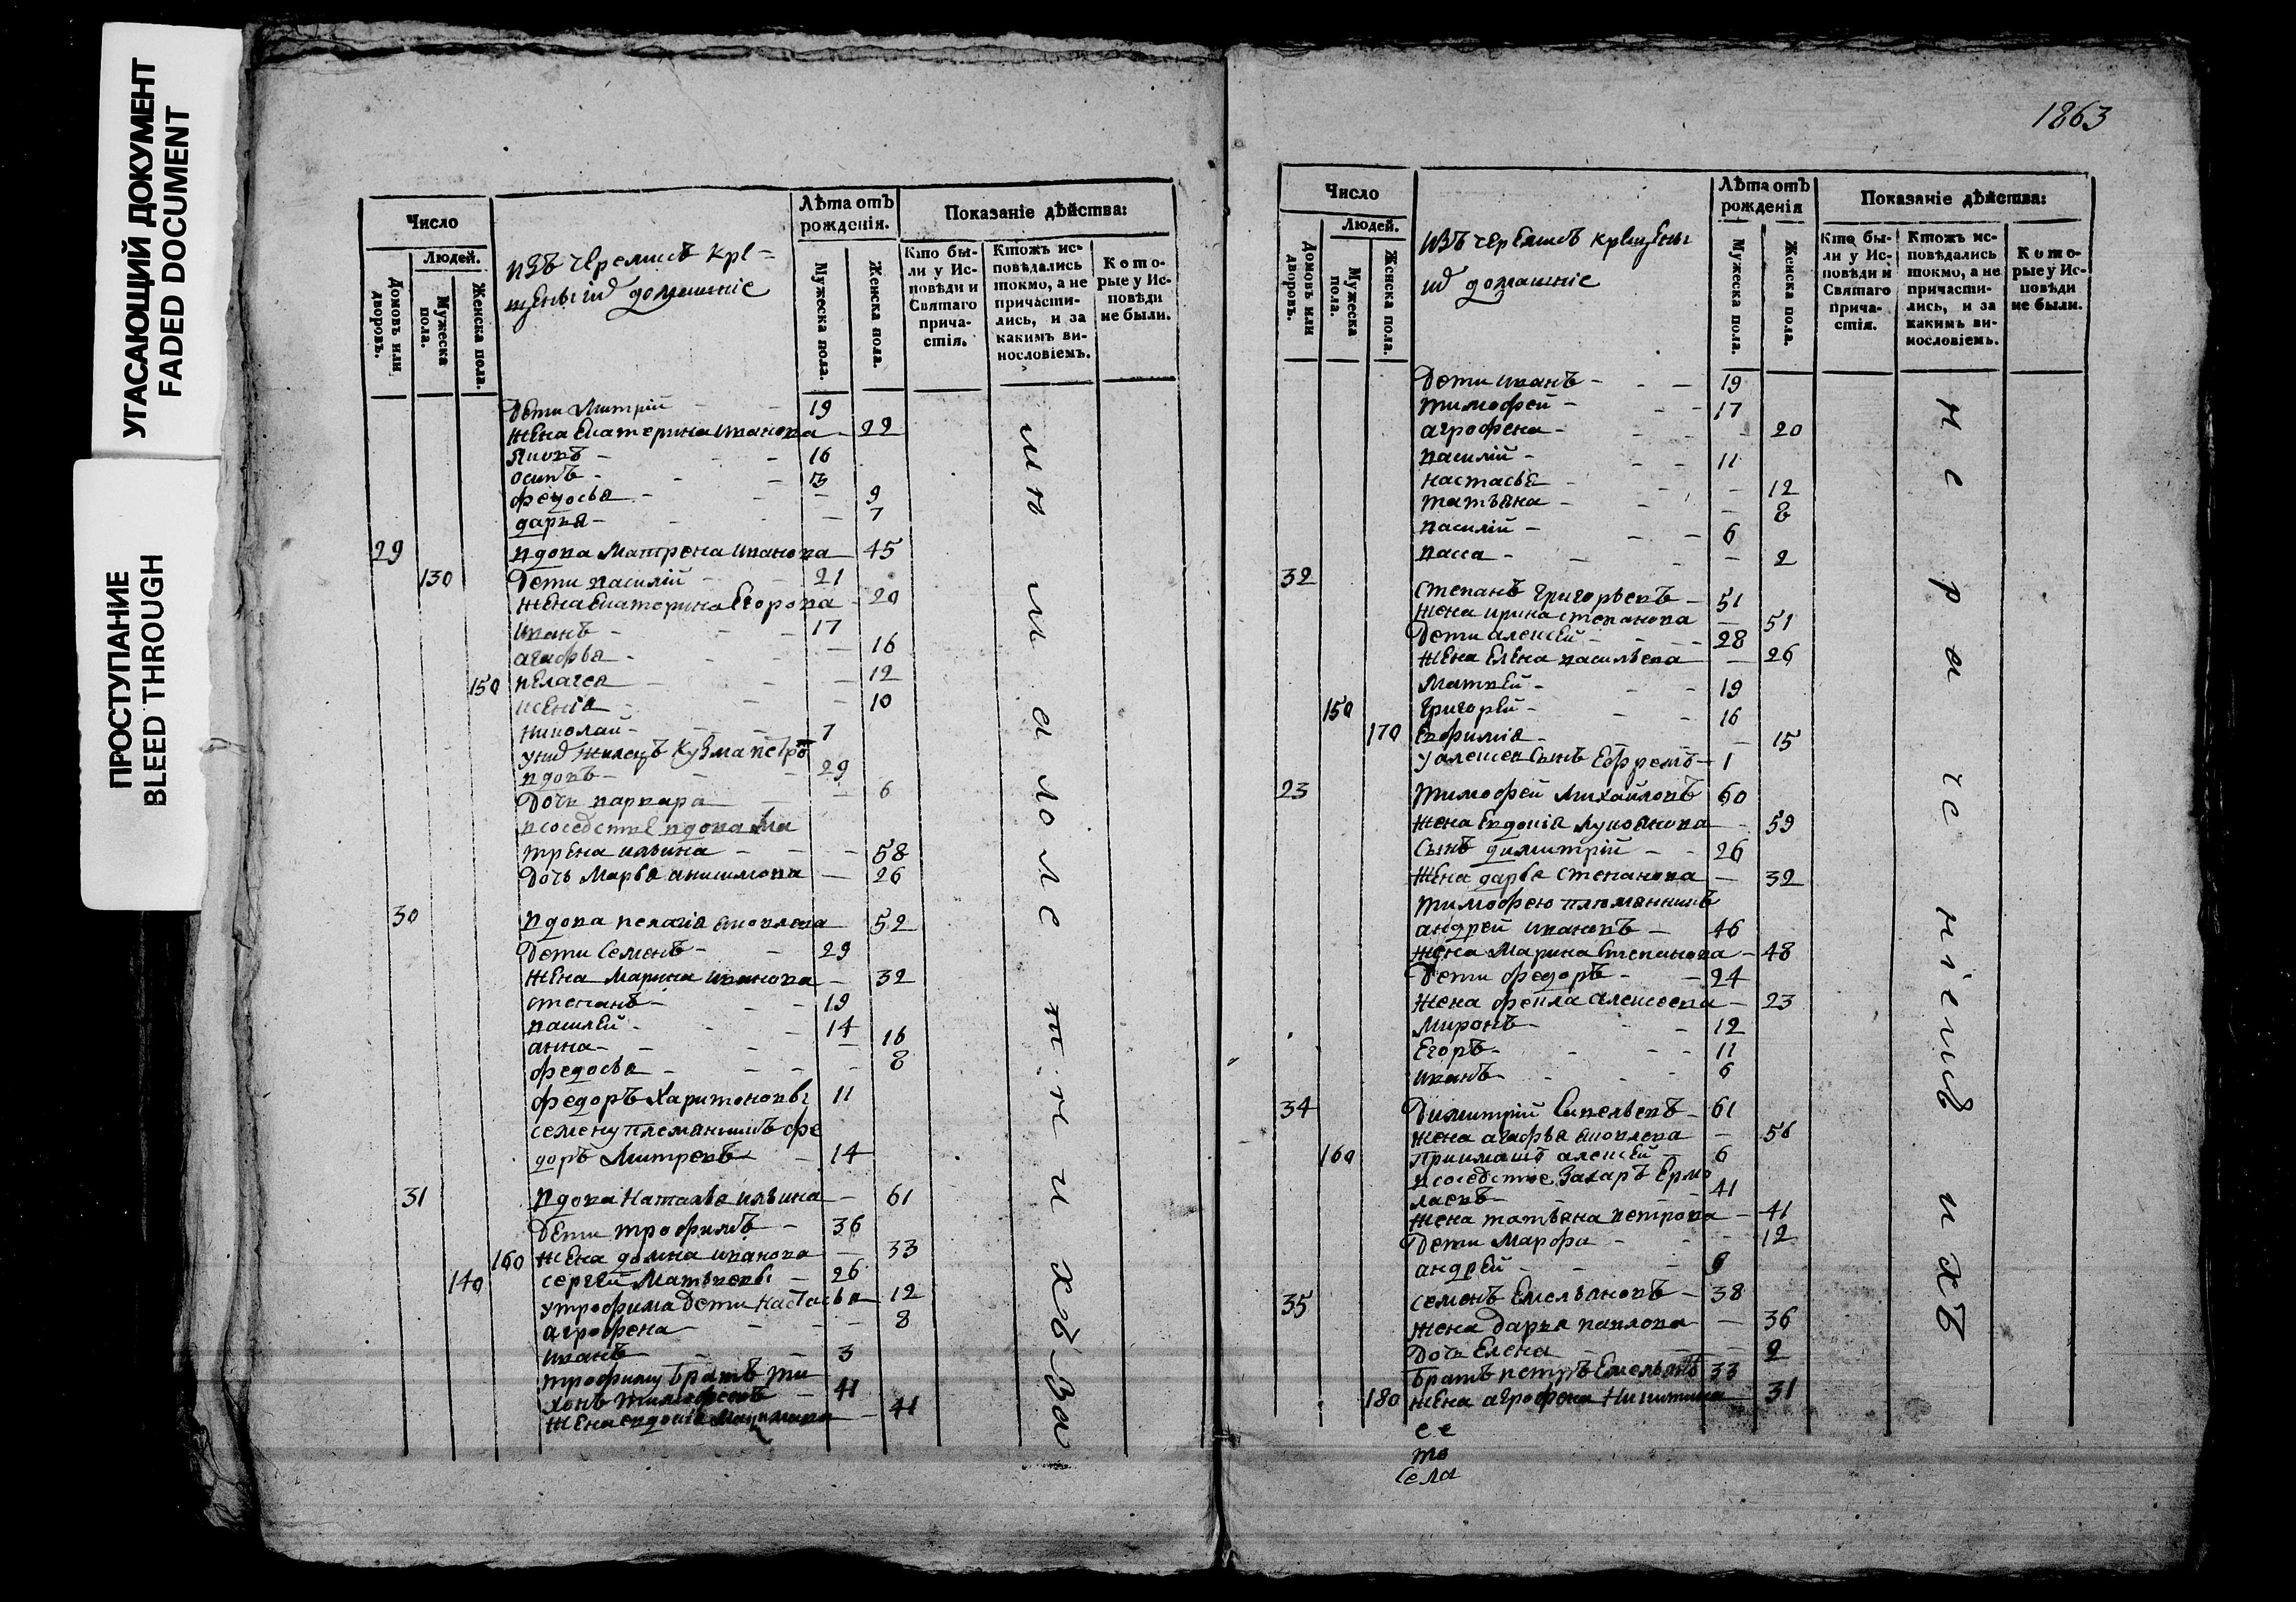 УГАСАЮЩИЙ ДОКУМЕНТ
FADED DOCUMENT
ПРОСТУПАНИЕ
BLEED THROUGH
Число
Людей.
Домовъ или дворовъ.
Мужеска пола.
Женска пола.
изъ черемисъ кре=
щеныхъ домашніе
Лѣта отъ рожденія.
Мужеска пола.
Женска пола.
Показаніе дѣйства:
Кто бы-
ли у Ис-
повѣди и
Святаго
прича-
стія.
Ктожъ ис-
повѣдались
токмо, а не
причасти-
лись, и за
какимъ ви-
нословіемъ.
Кото-
рые у Ис-
повѣди
не были.
Дети Митрій - - 19
жена Екатерина иванова - 22
Яковъ - - 16
осипъ - - 13
федосья - - 9
дарья - - 7
29 вдова Матрена иванова - 45
130 Дети василій - 21
жена Екатерина Егорова - 20
иванъ - - 17
агафья - - 16
150 пелагея - - 12
ксенія - - 10
николай - - 7
у них жилецъ Кузма петро
вдовъ - - 29
Дочь варвара - 6
в соседстве вдова Ма
трена ильина - - 58
Дочь Марья анисимова - 26
30 вдова пелагія яковлева 52
Дети Семенъ - - 29
жена Марина иванова - 32
степанъ - - 19
василей - - 14
анна - - 16
федосья - - 8
федоръ Харитоновы 11
семену племянникъ фе
доръ Митревъ - 14
31 вдова Наталья ильина - 61
Дети трофимъ - 36
160 жена домна иванова - 33
140 сергей Матвеевы - 26
у трофима Дети Настасья 12
агрофена - - 8
иванъ - - 3
трофиму братъ ти
хонъ тимофеевъ - 41
жена евдокія - 41
и ю и м а л о л е т н и х ъ
1863
Число
Людей.
Домовъ или дворовъ.
Мужеска пола.
Женска пола.
изъ черемисъ крещены
хъ домашніе
Лѣта отъ рожденія
Мужеска пола.
Женска пола.
Показаніе дѣйства:
Кто бы-
ли у Ис-
повѣди и
Святаго
прича-
стія.
Ктожъ ис-
повѣдались
токмо, а не
причасти-
лись, и за
какимъ ви-
нословіемъ.
Кото-
рые у Ис-
повѣди
не были.
Дети иванъ - - 19
тимофей - - 17
агрофена - - 20
василій - - 11
настасья - - 12
татьяна - - 8
василій - - 6
васса - - 2
32 степанъ григорьевъ - 51
жена ирина степанова - 51
Дети алексей - - 28
жена Елена васильева - 26
Матвей - - 19
150 григорей - - 16
170 Евфимія - - 15
у алексея сынъ Ефремъ - 1
23 тимофей Михайловъ 60
жена Евдокія Лукоянова - 59
сынъ димитрій - - 26
жена дарья степанова - 32
тимофею племянникъ
андрей ивановъ - 46
жена Марина степанова - 48
Дети федоръ - - 24
жена фекла алексеева - 23
Миронъ - - 12
Егоръ - - 11
иванъ - - 6
34 Димитрій Савельевъ - 61
жена агафья яковлева - 56
160 приимашъ алексей - 6
в соседстве Захаръ Ермо
лаевъ - 41
жена татьяна петрова - 41
Дети Марфа - - 12
андрей - - 9
35 семенъ Емельяновъ - 38
жена дарья павлова - 36
Дочь Елена - - 2
братъ петръ Емельянъ 33
180 жена агрофена Никитина 31
не раченіемъ ихъ
се
то
села